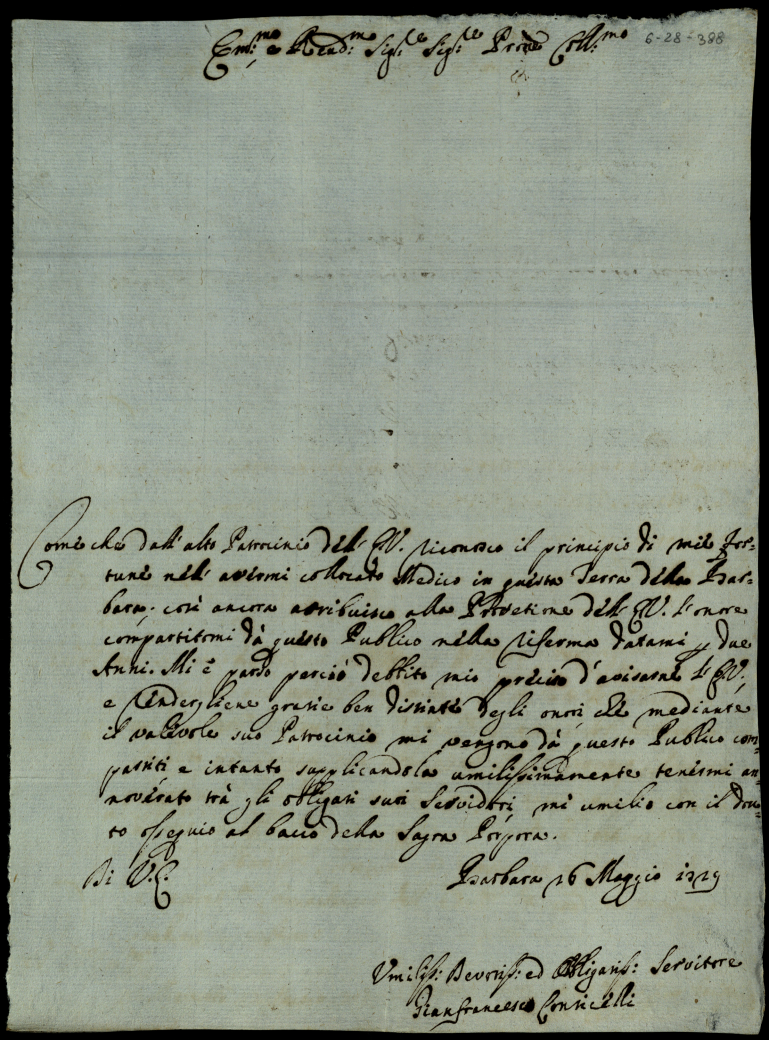 Em:mo e Reud:mo Sig:re Sig:re Prone Coll:mo 6-28-388
Come che dall'alto Patrocinio dell'E.V. riconosco il principio di mie For=
tune nell'avermi collocato Medico in questa Terra della Bar=
bara; così ancora attribuisco alla Protetione dell'E.V. l'onore
compartitomi dà questo Publico nella riferma datami p due
Anni. Mi è parso perciò debbito mio preciso d'avisarne l'E.V.,
e rendergliene grazie ben distinte degli onori che mediante
il valevole suo Patrocinio mi vengono dà questo Publico com=
partiti e intanto supplicandola umilissimamente tenermi an=
noverato trà gli obligati suoi Servidori mi umilio con il dou=
to ossequio al baccio della Sagra Porpora.
Di V.E. Barbara 16 Maggio 1719
Umiliss: Devotiss: ed Obligatiss: Servitore
Gianfrancesco